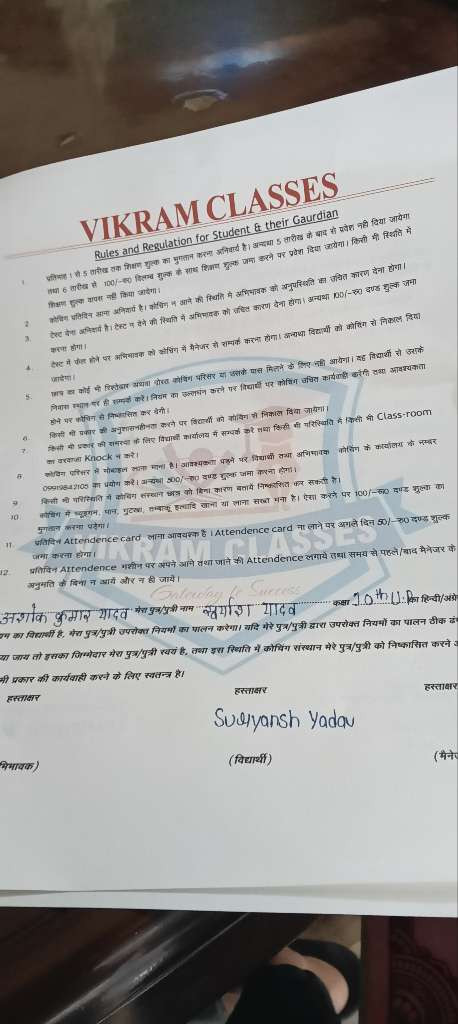 VIKRAM CLASSES
Rules and Regulation for Student & their Gaurdian
1. प्रतिमाह 1 से 5 तारीख तक शिक्षण शुल्क का भुगतान करना अनिवार्य है। अन्यथा 5 तारीख के बाद से प्रवेश नही दिया जायेगा
तथा 6 तारीख से 100/-रु0 विलम्ब शुल्क के साथ शिक्षण शुल्क जमा करने पर प्रवेश दिया जायेगा। किसी भी स्थिति में
शिक्षण शुल्क वापस नहीं किया जायेगा।
2 कोचिंग प्रतिदिन आना अनिवार्य है। कोचिंग न आने की स्थिति में अभिभावक को अनुपस्थिति का उचित कारण देना होगा।
3. टेस्ट देना अनिवार्य है। टेस्ट न देने की स्थिति में अभिभावक को उचित कारण देना होगा। अन्यथा 100/-रु0 दण्ड शुल्क जमा
करना होगा।
4. टेस्ट में फेल होने पर अभिभावक को कोचिंग में मैनेजर से सम्पर्क करना होगा। अन्यथा विद्यार्थी को कोचिंग से निकाल दिया
जायेगा।
5. छात्र का कोई भी रिश्तेदार अथवा दोस्त कोचिंग परिसर या उसके पास मिलने के लिए नही आयेगा। वह विद्यार्थी से उसके
निवास स्थान पर ही सम्पर्क करें। नियम का उल्लंघन करने पर विद्यार्थी पर कोचिंग उचित कार्यवाही करेगी तथा आवश्यकता
होने पर कोचिंग से निष्कासित कर देगी।
6. किसी भी प्रकार की अनुशासनहीनता करने पर विद्यार्थी को कोचिंग से निकाल दिया जायेगा।
7. किसी भी प्रकार की समस्या के लिए विद्यार्थी कार्यालय में सम्पर्क करे तथा किसी भी परिस्थिति में किसी भी Class-room
का दरवाजा Knock न करे।
8 कोचिंग परिसर में मोबाइल लाना मना है। आवश्यकता पड़ने पर विद्यार्थी तथा अभिभावक कोचिंग के कार्यालय के नम्बर
09919842105 का प्रयोग करें। अन्यथा 500/-रु0 दण्ड शुल्क जमा करना होगा।
9 किसी भी परिस्थिति में कोचिंग संस्थान छात्र को बिना कारण बताये निष्कासित कर सकती है।
10 कोचिंग में च्यूइंगम, पान, गुटखा, तम्बाकू इत्यादि खाना या लाना सख्त मना है। ऐसा करने पर 100/-रु0 दण्ड शुल्क का
भुगतान करना पड़ेगा।
11. प्रतिदिन Attendence card लाना आवश्यक है। Attendence card ना लाने पर अगले दिन 50/-रु0 दण्ड शुल्क
जमा करना होगा।
12. प्रतिदिन Attendence मशीन पर अपने आने तथा जाने की Attendence लगाये तथा समय से पहले/बाद मैनेजर के
अनुमति के बिना न आये और न ही जायें।
VIKRAM CLASSES
Gateway to Success
अशोक कुमार यादव मेरा पुत्र/पुत्री नाम सूर्यांश यादव कक्षा 10th U.P का हिन्दी/अंग्रे
का विद्यार्थी है, मेरा पुत्र/पुत्री उपरोक्त नियमों का पालन करेगा। यदि मेरे पुत्र/पुत्री द्वारा उपरोक्त नियमों का पालन ठीक ढं
या जाय तो इसका जिम्मेदार मेरा पुत्र/पुत्री स्वयं है, तथा इस स्थिति में कोचिंग संस्थान मेरे पुत्र/पुत्री को निष्कासित करने
मी प्रकार की कार्यवाही करने के लिए स्वतन्त्र है।
हस्ताक्षर हस्ताक्षर हस्ताक्षर
Suryansh Yadav
भिभावक) (विद्यार्थी) (मैने